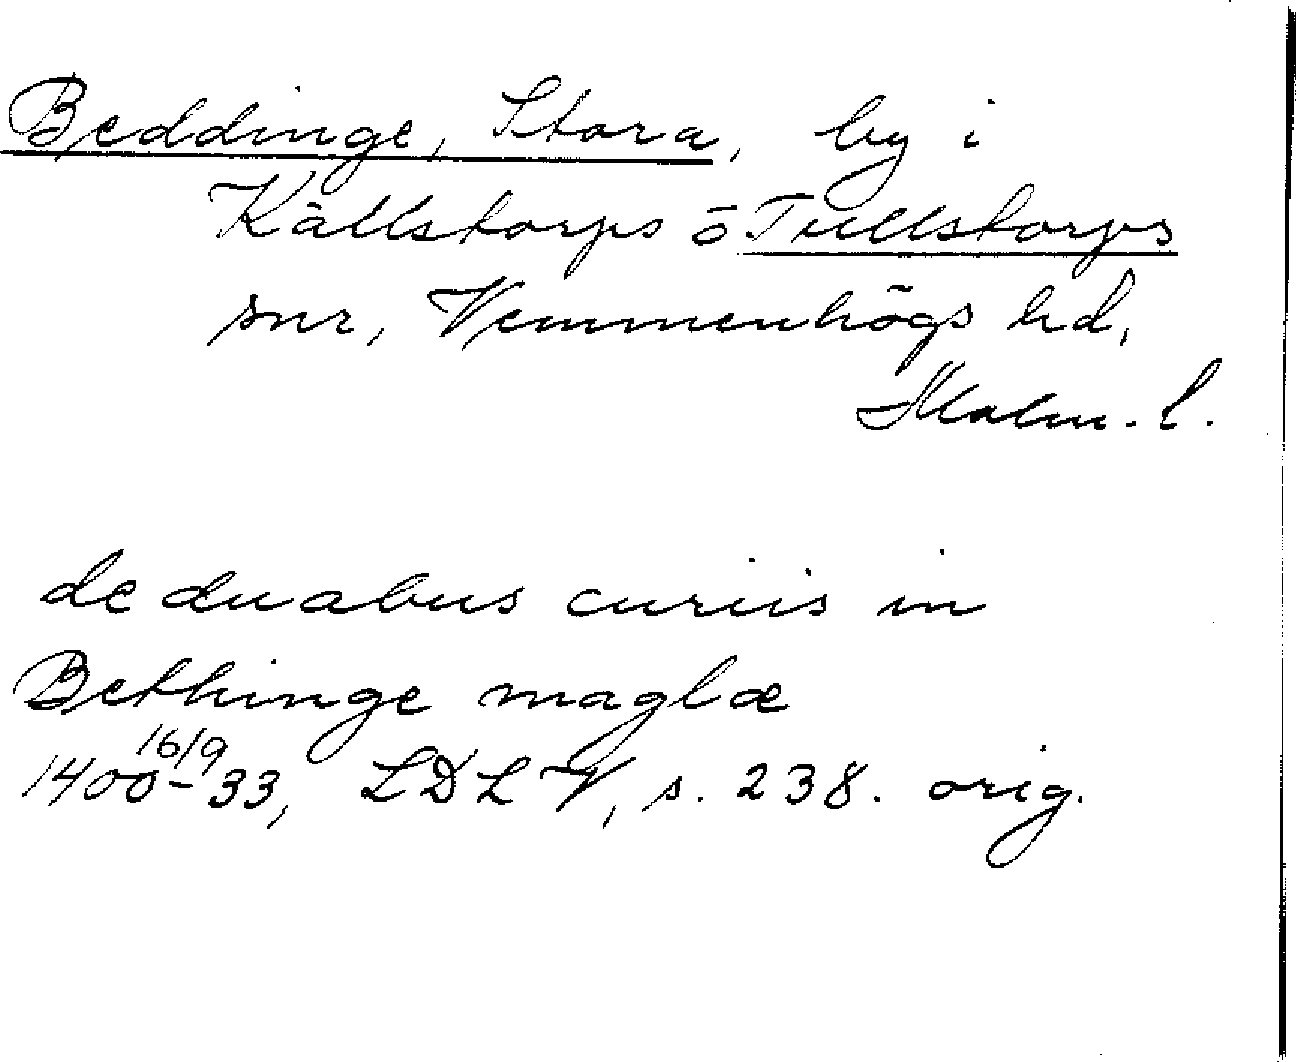 Beddinge, Stora, by i
Källstorps o Tullstorps
snr, Vemmenhögs hd,
Malm. l.
de duabus curiis in
Bethinge maglæ
1400 16/9 -33, LDL V, s. 238. orig.